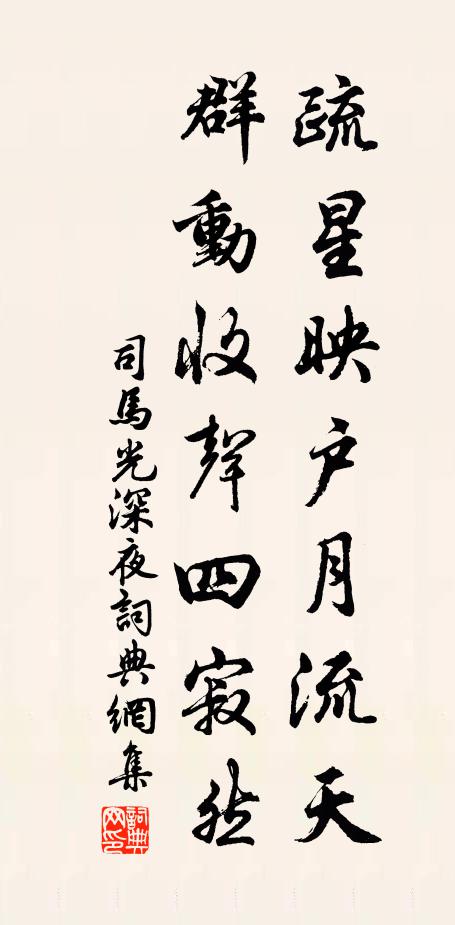 疏星映户月流天
群動收聲四寂然
司馬光深夜詞典網集
詞典網印